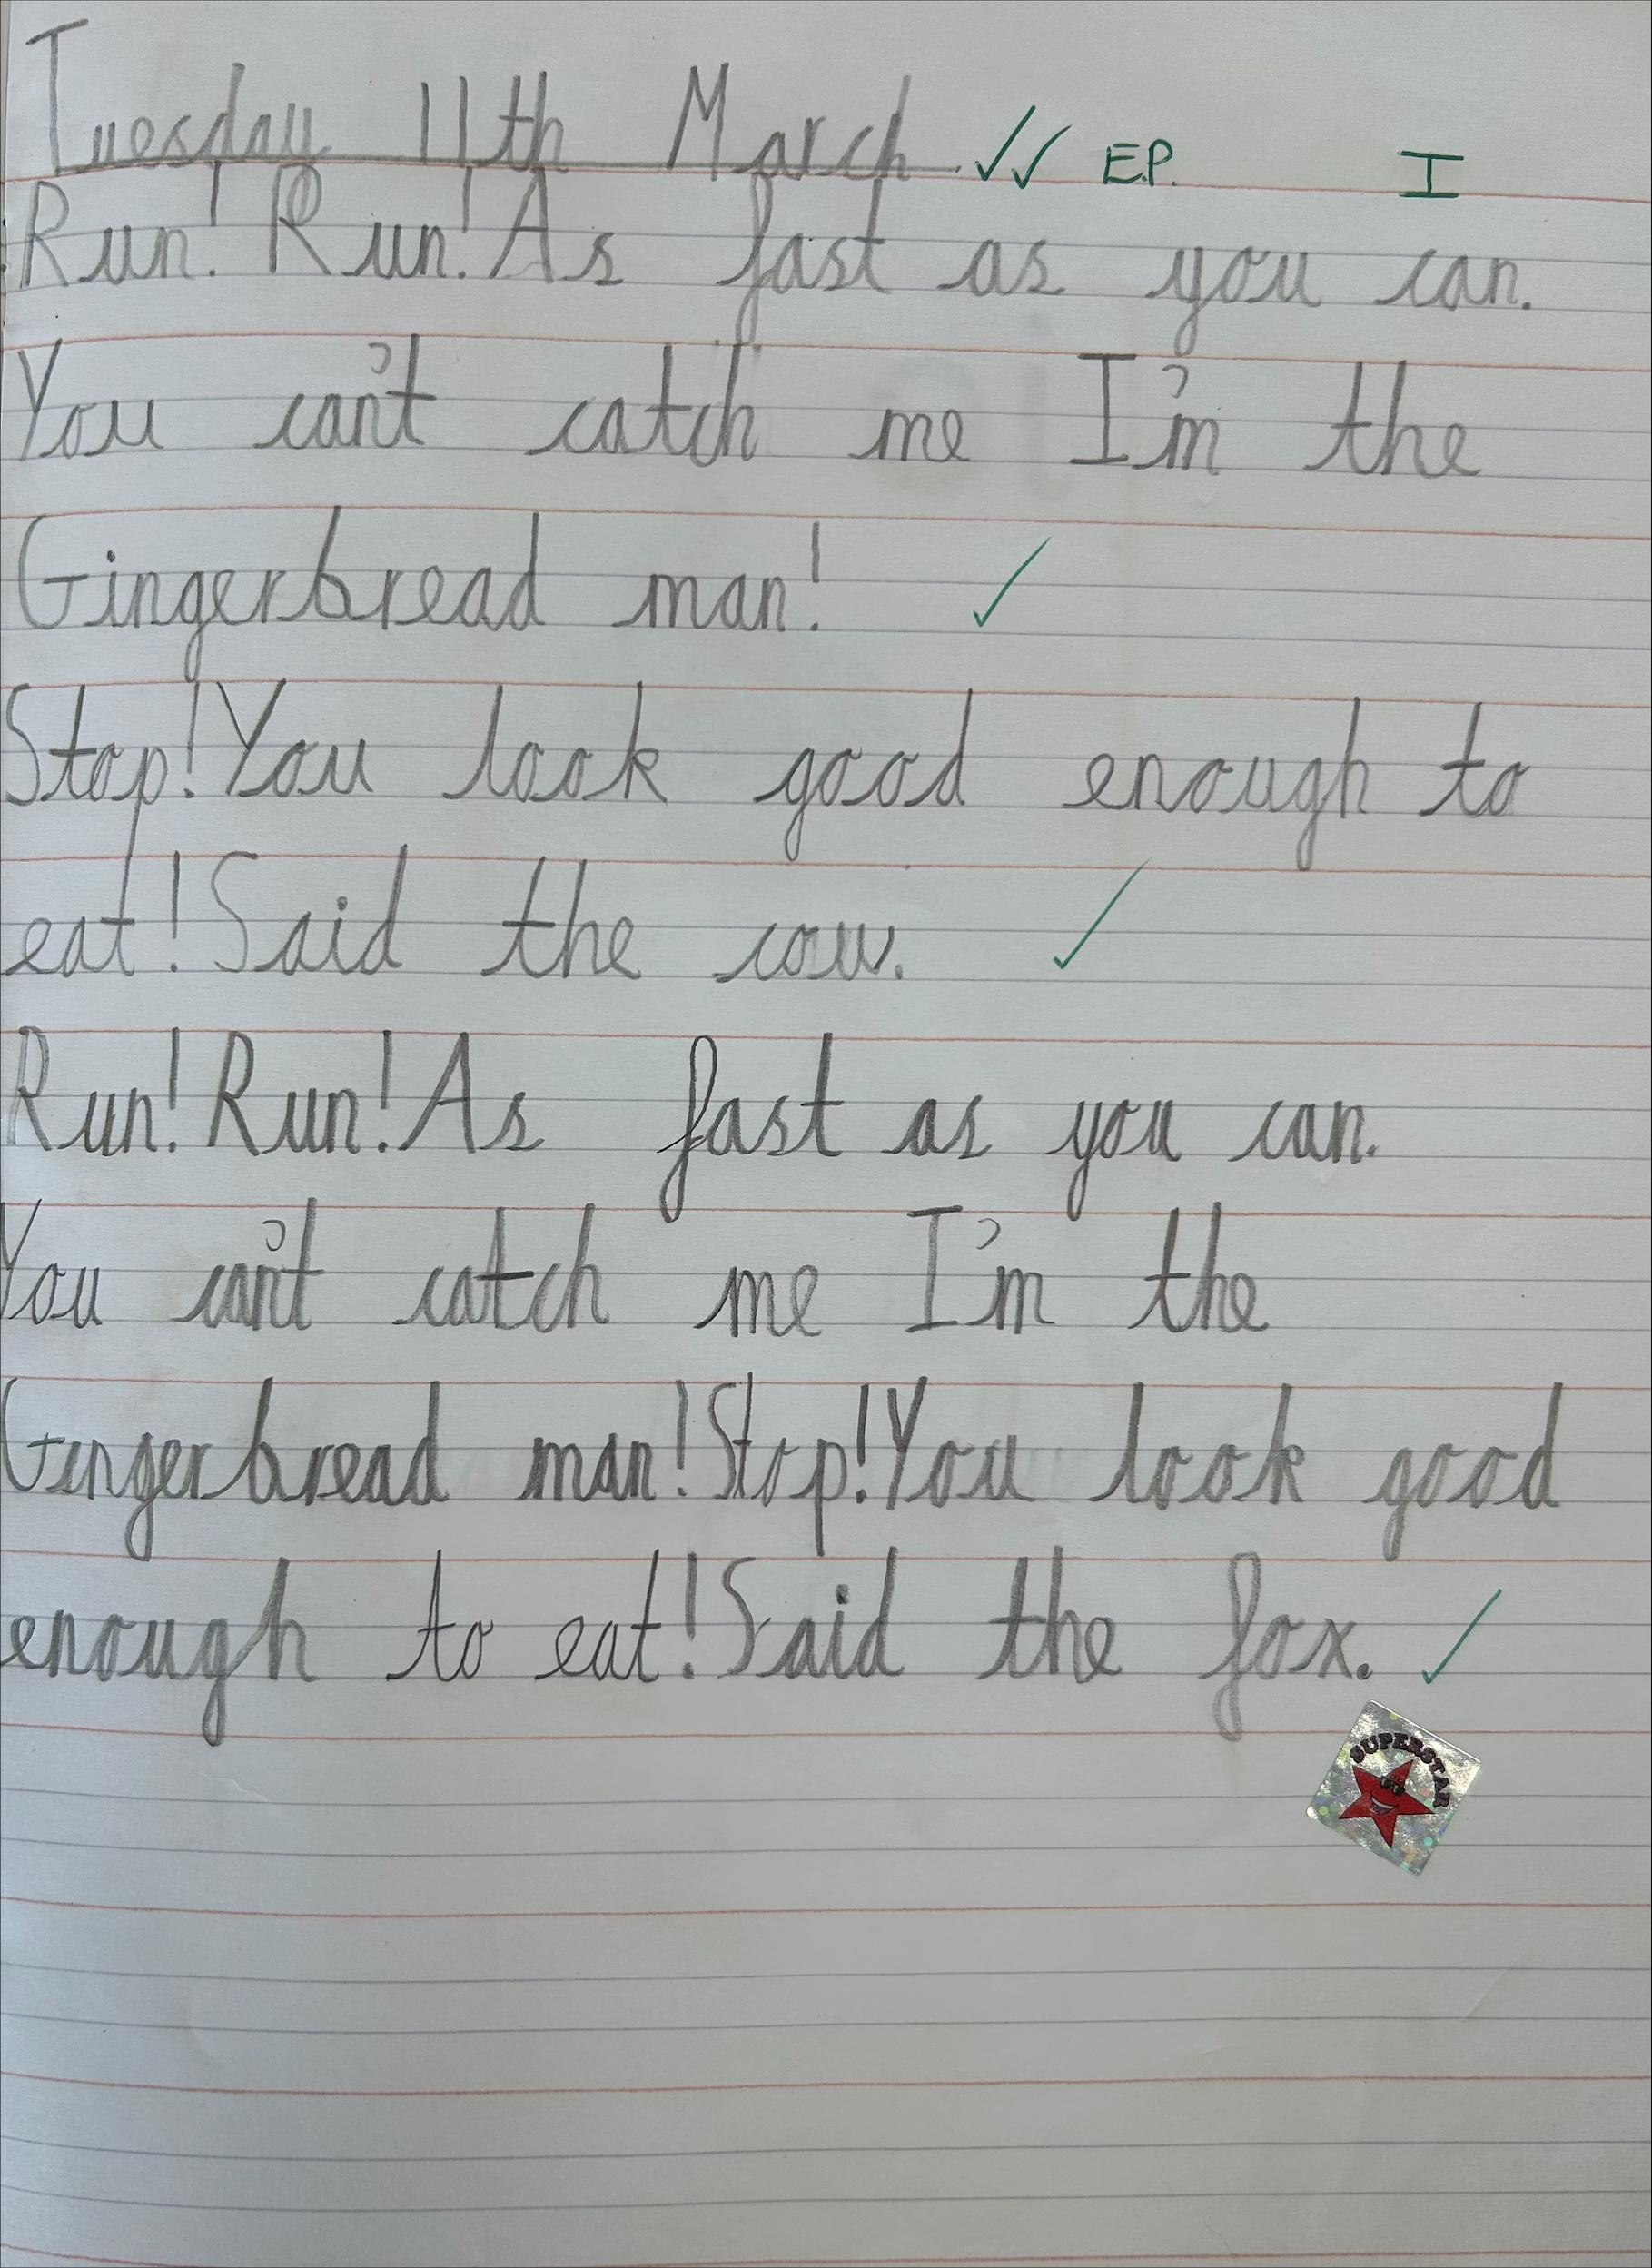 Tuesday 11th March. E.P. I
Run! Run! As fast as you can.
You can't catch me I'm the
Gingerbread man!
Stop! You look good enough to
eat! Said the cow.
Run! Run! As fast as you can.
You can't catch me I'm the
Gingerbread man! Stop! You look good
enough to eat! Said the fox.
SUPERSTAR